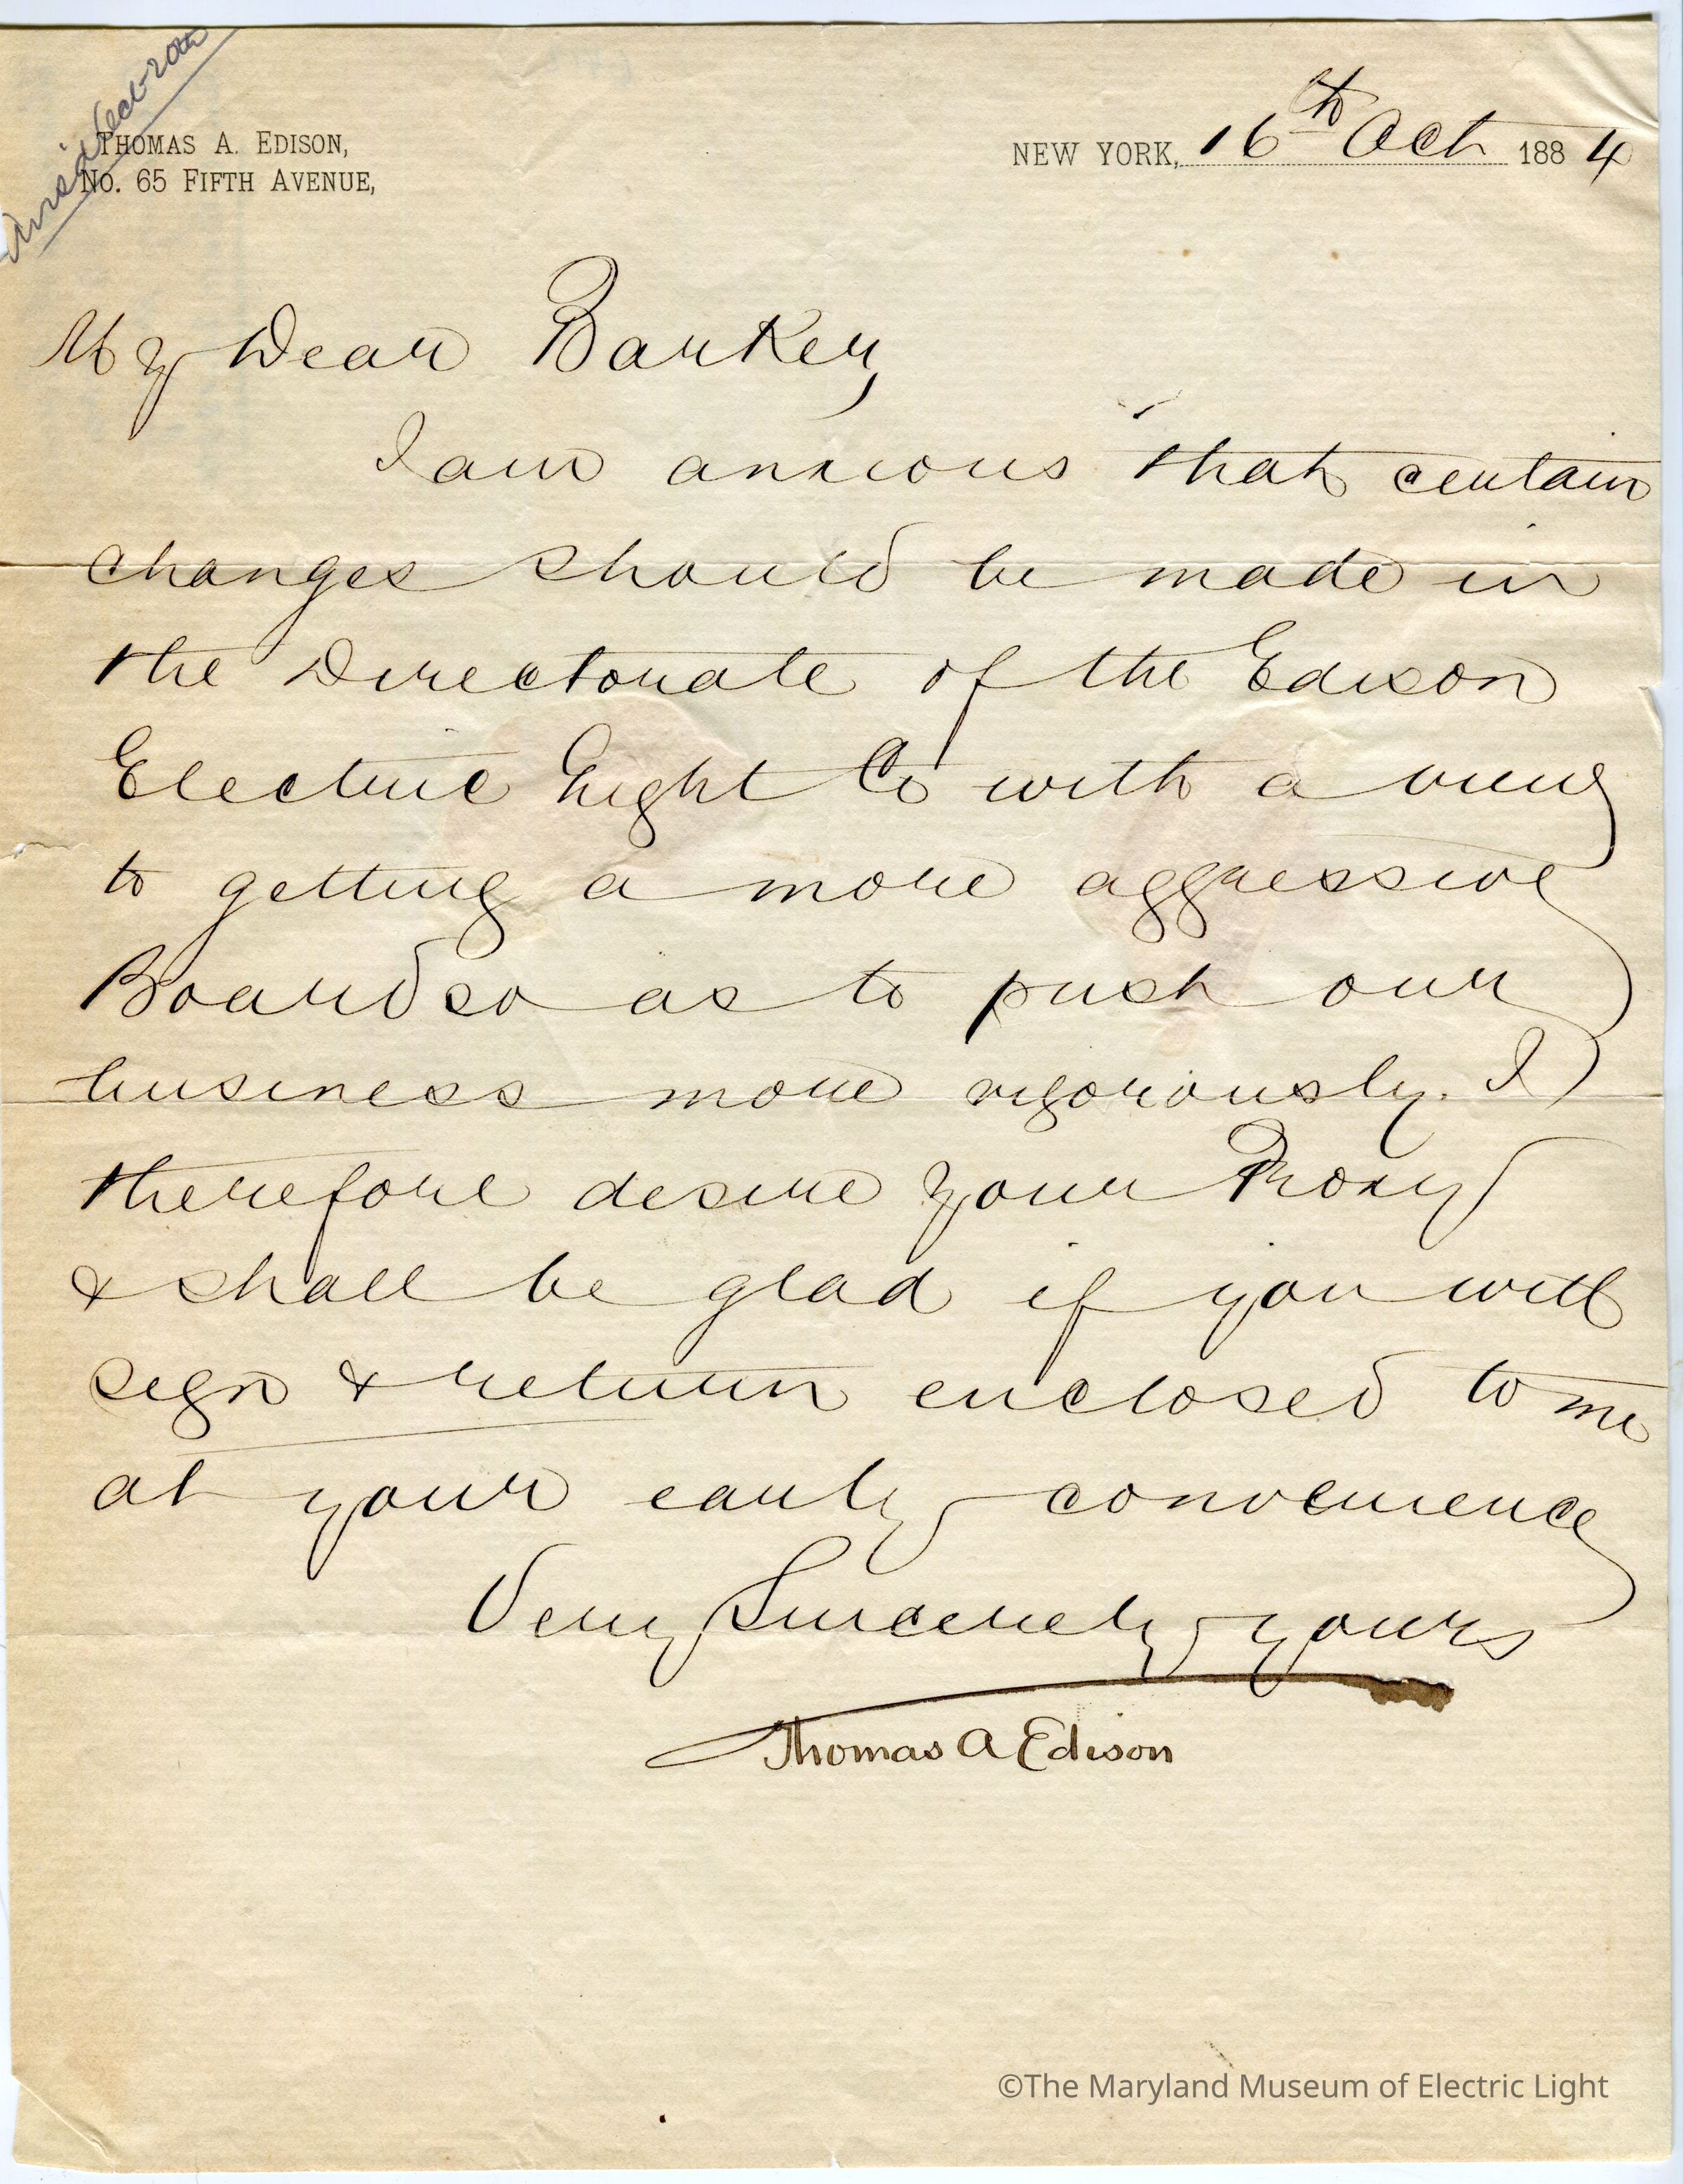 Oct 20th
THOMAS A. EDISON,
No. 65 FIFTH AVENUE,
NEW YORK, 16th Oct 1884
My Dear Barker,
I am anxious that certain
changes should be made in
the Directorate of the Edison
Electric Light Co with a view
to getting a more aggressive
Board so as to push our
business more vigorously. I
therefore desire your Proxy
& shall be glad if you will
sign & return enclosed to me
at your early convenience
Very Sincerely yours
Thomas A Edison
©The Maryland Museum of Electric Light